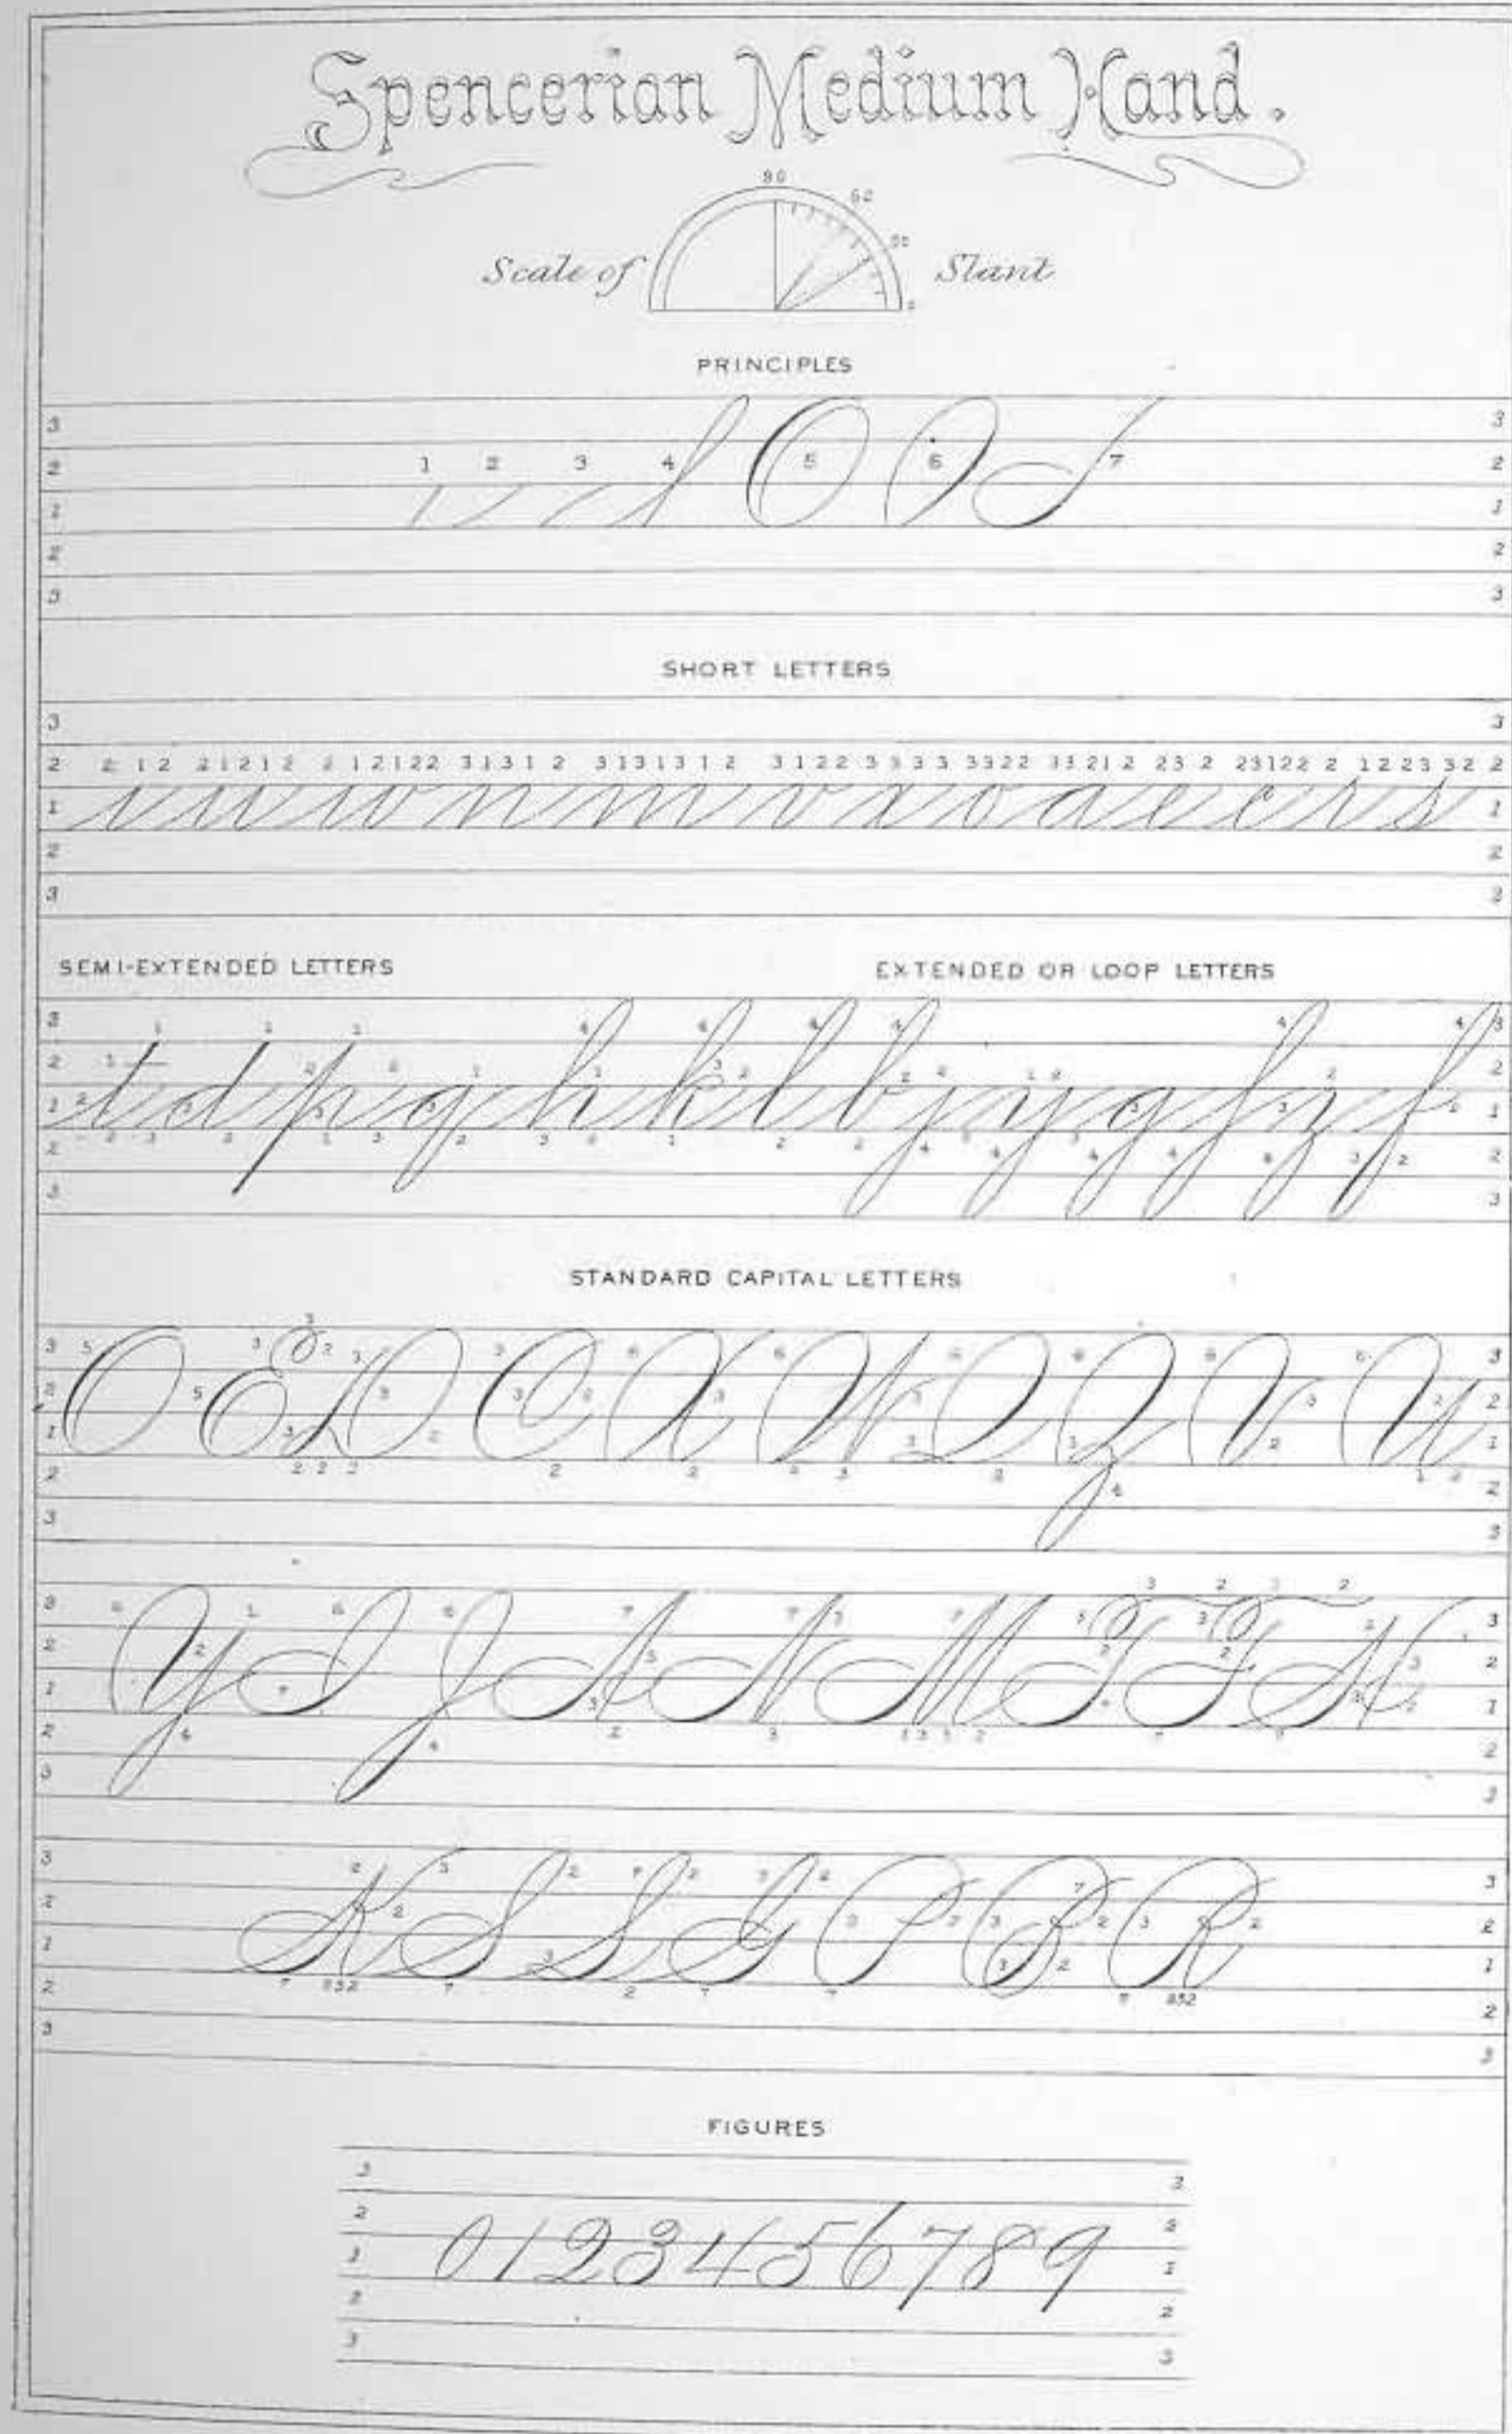 Spencerian Medium Hand.
90
60
Scale of Slant
PRINCIPLES
3 3
2 1 2 3 4 5 6 7 2
1 1
2 2
3 3
SHORT LETTERS
3 3
2 2 1 2 2 1 2 1 2 2 1 2 1 2 2 3 1 3 1 2 3 1 3 1 3 1 2 3 1 2 2 3 3 3 3 3 3 2 2 3 3 2 1 2 2 3 2 2 3 1 2 2 2 1 2 2 3 3 2 2
1 i u w n m v x o a e c r s 1
2 2
3 3
SEMI-EXTENDED LETTERS EXTENDED OR LOOP LETTERS
t d p q h k l b j y g f z f
STANDARD CAPITAL LETTERS
O E D C X W Q Z V U
Y I J A N M T F H
K S L G P B R
FIGURES
3 3
2 2
0 1 2 3 4 5 6 7 8 9
1 1
2 2
3 3